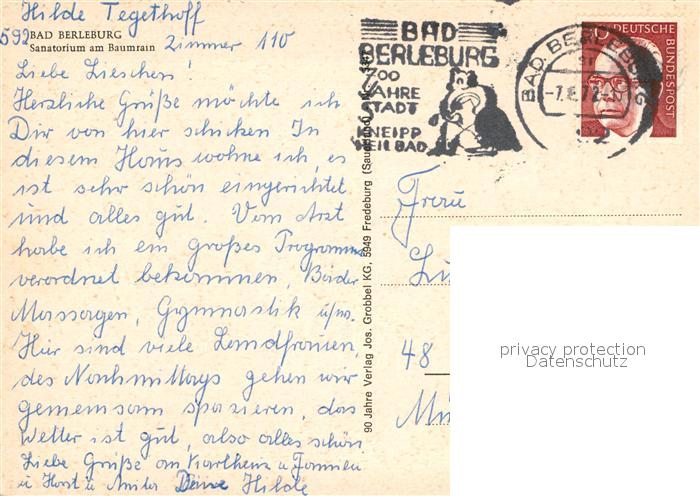 Hilde Tegethoff
592 BAD BERLEBURG
Sanatorium am Baumrain Zimmer 110
Liebe Lieschen!
Herzliche Grüße möchte ich
Dir von hier schicken In
diesem Haus wohne ich, es
ist sehr schön eingerichtet
und alles gut. Vom Arzt
habe ich ein großes Programm
verordnet bekommen, Bäder
Massagen, Gymnastik usw.
Hier sind viele Landfrauen,
des Nachmittags gehen wir
gemeinsam spazieren, das
Wetter ist gut, also alles schön
Liebe Grüße an Karlheinz u
u Horst u Deine Hilde
90 Jahre Verlag Jos. Grobbel KG, 5949 Fredeburg (Sauerland)
BAD
BERLEBURG
700
JAHRE
STADT
KNEIPP
HEILBAD
BAD BERLEBURG
DEUTSCHE
BUNDESPOST
Frau
48
privacy protection
Datenschutz